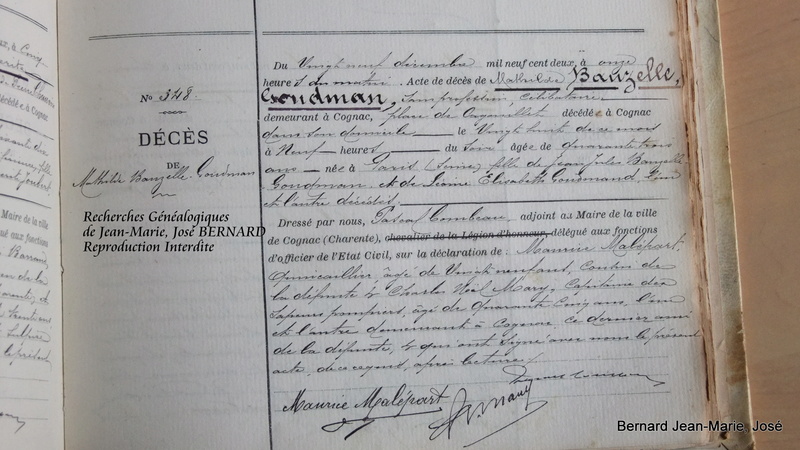 Nº 348.
DÉCÈS
DE
Mathilde Bauzelle-Goudman
Recherches Généalogiques
de Jean-Marie, José BERNARD
Reproduction Interdite
Du Vingt neuf décembre mil neuf cent deux, à onze
heure s du matin. Acte de décès de Mathilde Bauzelle,
Goudman, sans profession, célibataire
demeurant à Cognac, place de décédée à Cognac
dans son domicile le Vingt huit de ce mois
à Neuf heures du soir âgée de quarante trois
ans née à Paris (Seine) fille de Jean Jules Bauzelle
Goudman et de Léonie Élisabeth Goudmand l'un
et l'autre décédés.
Dressé par nous, Pascal Combeau, adjoint au Maire de la ville
de Cognac (Charente), chevalier de la Légion d'honneur, délégué aux fonctions
d'officier de l'Etat Civil, sur la déclaration de Maurice Malépart
Quincaillier âgé de Vingt neuf ans, Cousin de
la défunte & Charles Noël Mary, Capitaine des
Sapeurs pompiers, âgé de Quarante Cinq ans, l'un
et l'autre demeurant à Cognac, ce dernier ami
de la défunte, & qui ont signé avec nous le présent
acte, de ce requis, après lecture.
Maurice Malépart
Bernard Jean-Marie, José